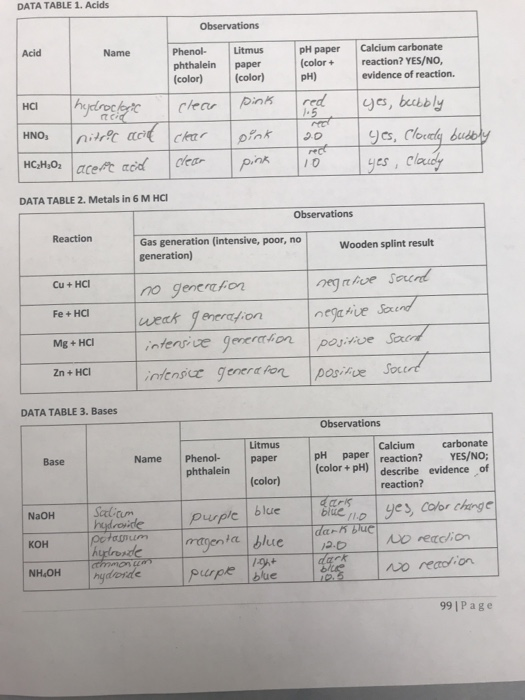 DATA TABLE 1. Acids
Observations
Acid Name Phenol-phthalein (color) Litmus paper (color) pH paper (color + pH) Calcium carbonate reaction? YES/NO, evidence of reaction.
HCl acid clear pink red 1.5 yes, bubbly
HNO₃ nitric acid clear pink red 2.0 yes, cloudy bubbly
HC₂H₃O₂ acetic acid clear pink red yes, cloudy
DATA TABLE 2. Metals in 6 M HCl
Observations
Reaction Gas generation (intensive, poor, no generation) Wooden splint result
Cu + HCl no generation negative sound
Fe + HCl weak generation negative sound
Mg + HCl intensive generation positive sound
Zn + HCl intensive generation positive sound
DATA TABLE 3. Bases
Observations
Base Name Phenol-phthalein Litmus paper (color) pH paper (color + pH) Calcium carbonate reaction? YES/NO; describe evidence of reaction?
NaOH Sodium hydroxide purple blue dark blue 11.0 yes, color change
KOH potassium hydroxide magenta blue dark blue 12.0 NO reaction
NH₄OH ammonium hydroxide purple light blue dark blue 10.5 NO reaction
99 | Page